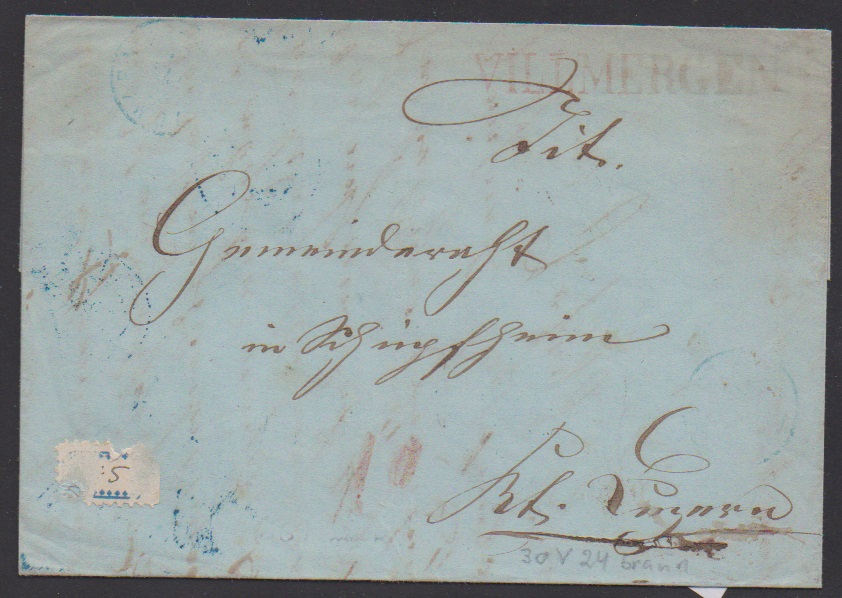 VILLMERGEN
Tit.
Gemeinderaht
in Schüpfheim
10
Kt. Luzern
5
30 V 24 braun